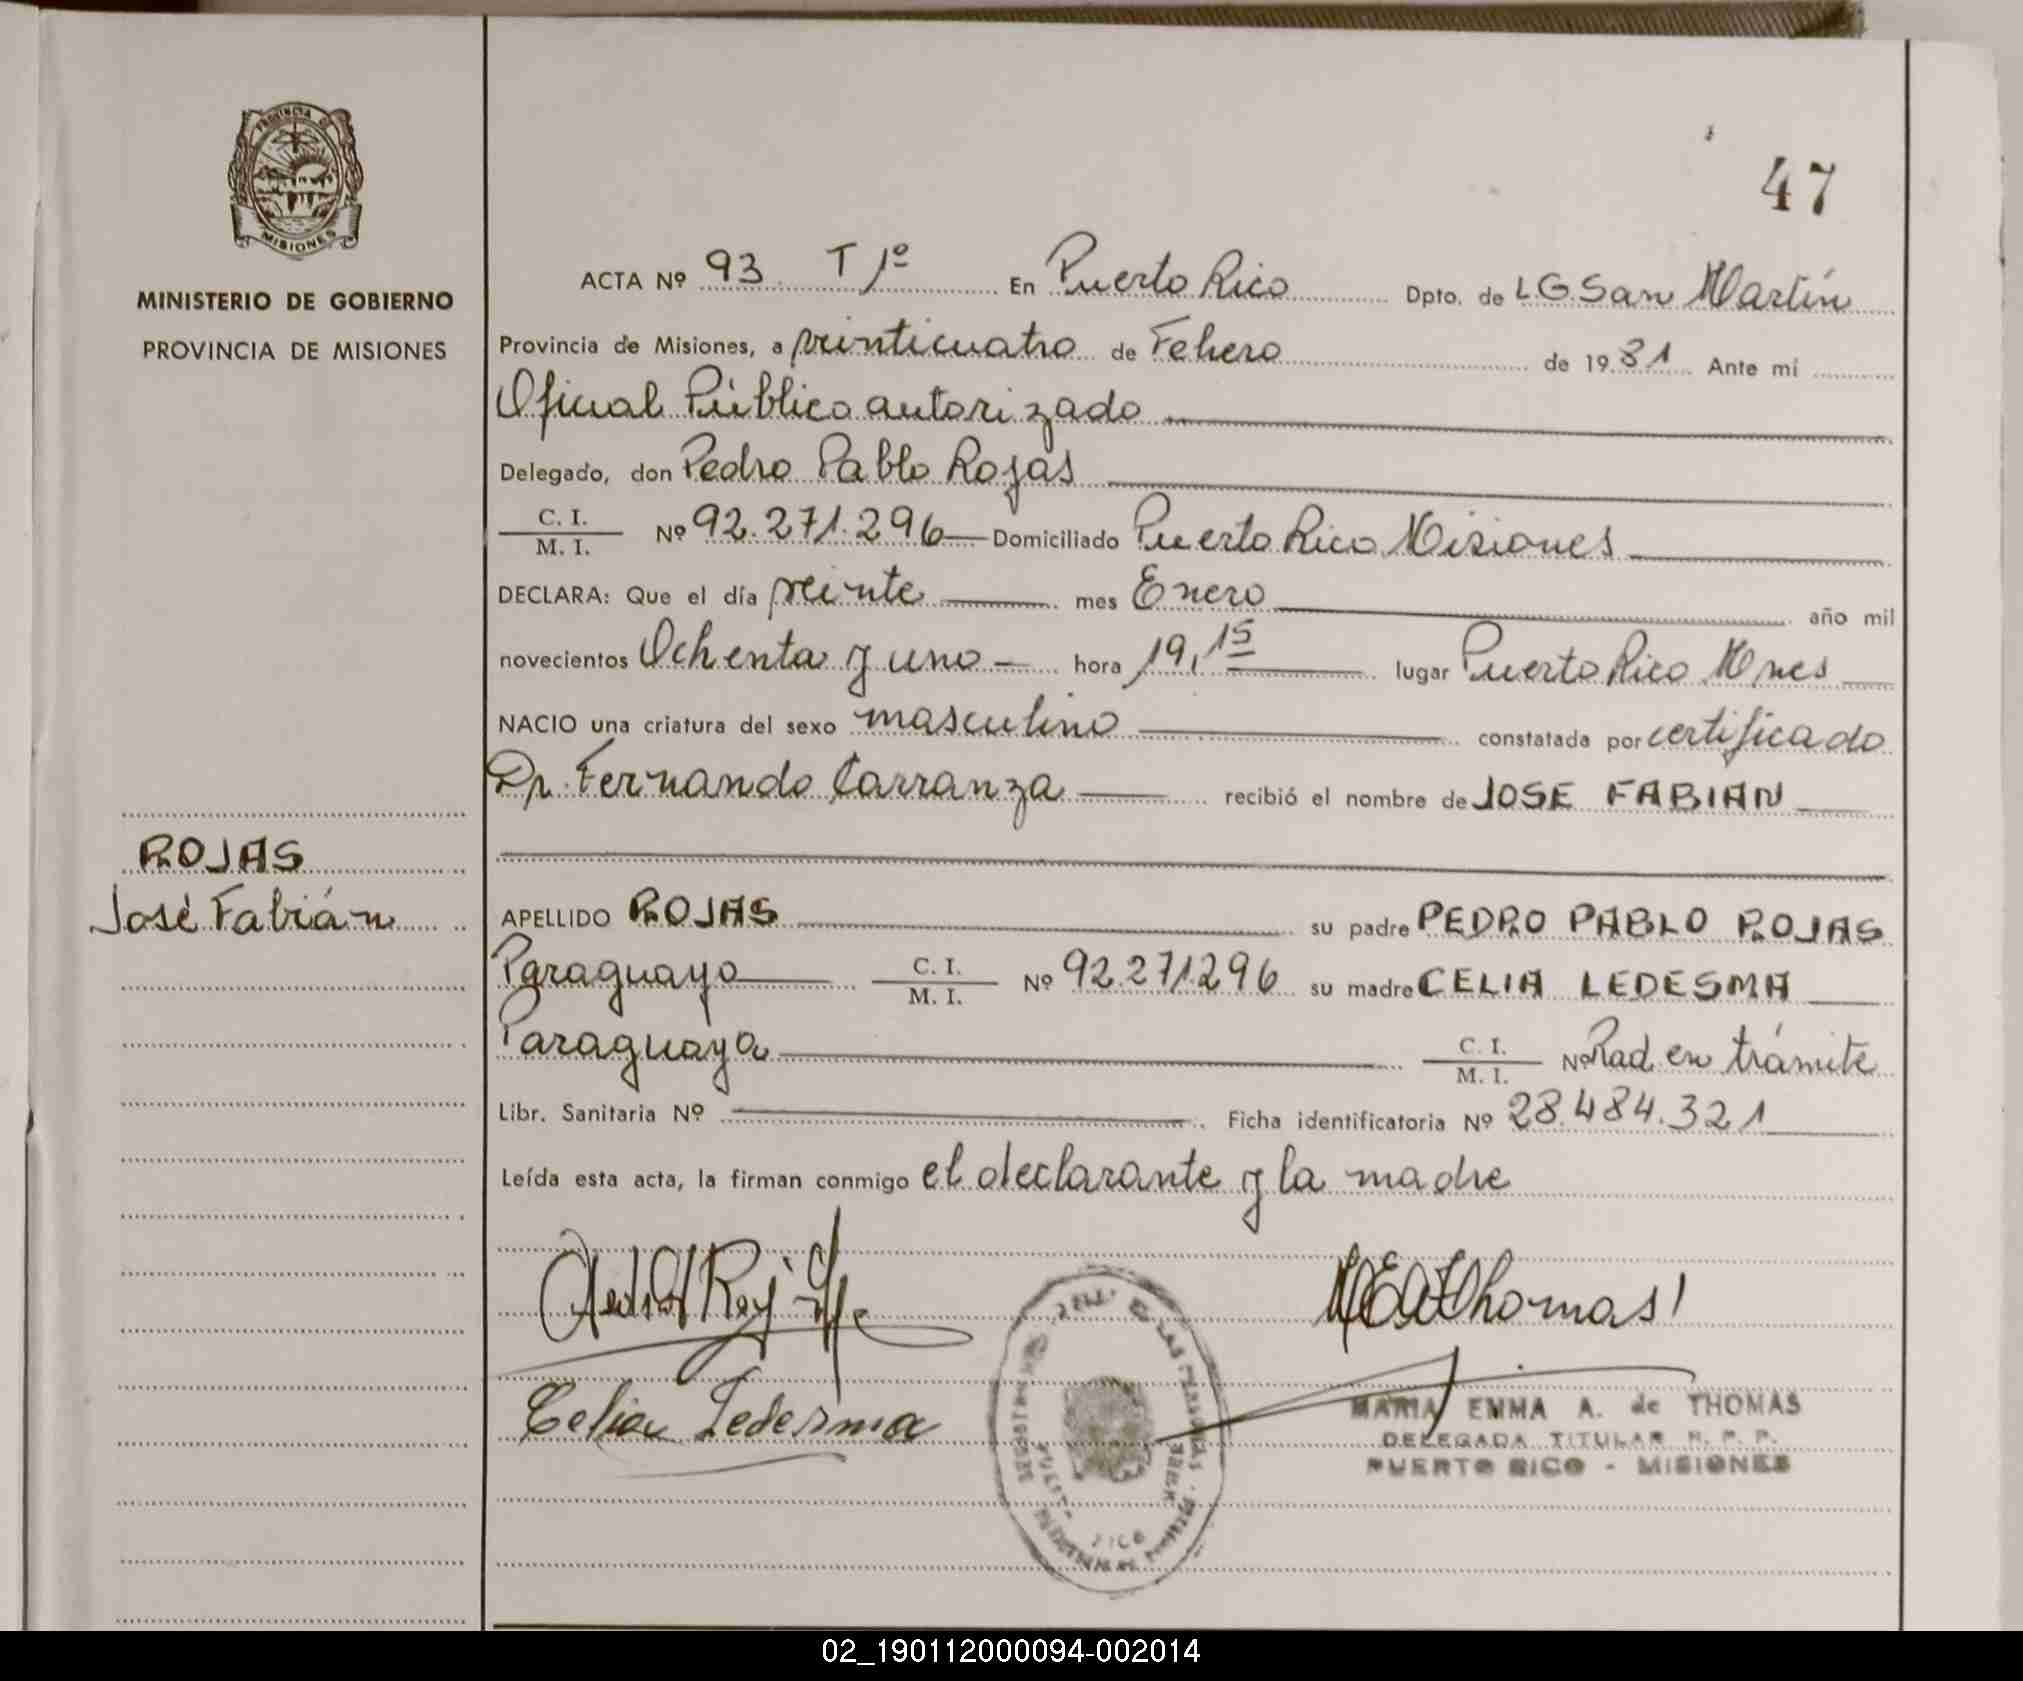 47
PROVINCIA DE
MISIONES
MINISTERIO DE GOBIERNO
PROVINCIA DE MISIONES
ROJAS
José Fabián
ACTA Nº 93 T 1º En Puerto Rico Dpto. de L.G. San Martín
Provincia de Misiones, a veinticuatro de Febero de 1981 Ante mí
Oficial Público autorizado
Delegado, don Pedro Pablo Rojas
C. I.
M. I. Nº 92.271.296 Domiciliado Puerto Rico Misiones
DECLARA: Que el día veinte mes Enero año mil
novecientos Ochenta y uno hora 19,15 lugar Puerto Rico Mnes
NACIO una criatura del sexo masculino constatada por certificado
Dr. Fernando Carranza recibió el nombre de JOSE FABIAN
APELLIDO ROJAS su padre PEDRO PABLO ROJAS
Paraguayo C. I. M. I. Nº 92.271.296 su madre CELIA LEDESMA
Paraguaya C. I. M. I. Nº Rad. en trámite
Libr. Sanitaria Nº Ficha identificatoria Nº 28.484.321
Leída esta acta, la firman conmigo el declarante y la madre
Celia Ledesma
MEA Thomas
MARIA EMMA A. de THOMAS
DELEGADA TITULAR R. P. P.
PUERTO RICO - MISIONES
02_190112000094-002014